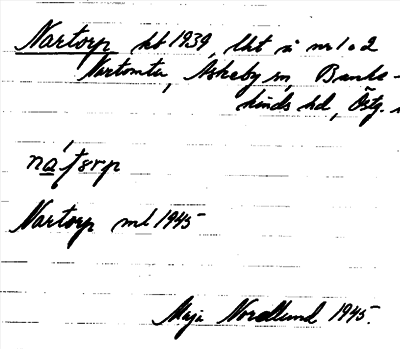 Nartorp hb 1939, lht i nr 1 o 2
Nartomta, Askeby sn, Banke-
kinds hd, Östg.
Nartorp ml 1945
Maja Nordlund 1945.